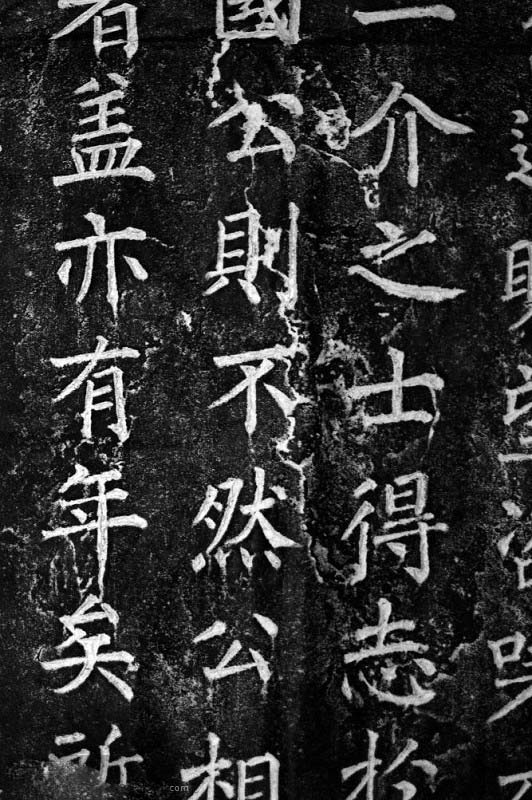 一介之士得志扵
國公則不然公相
者盖亦有年矣所
com